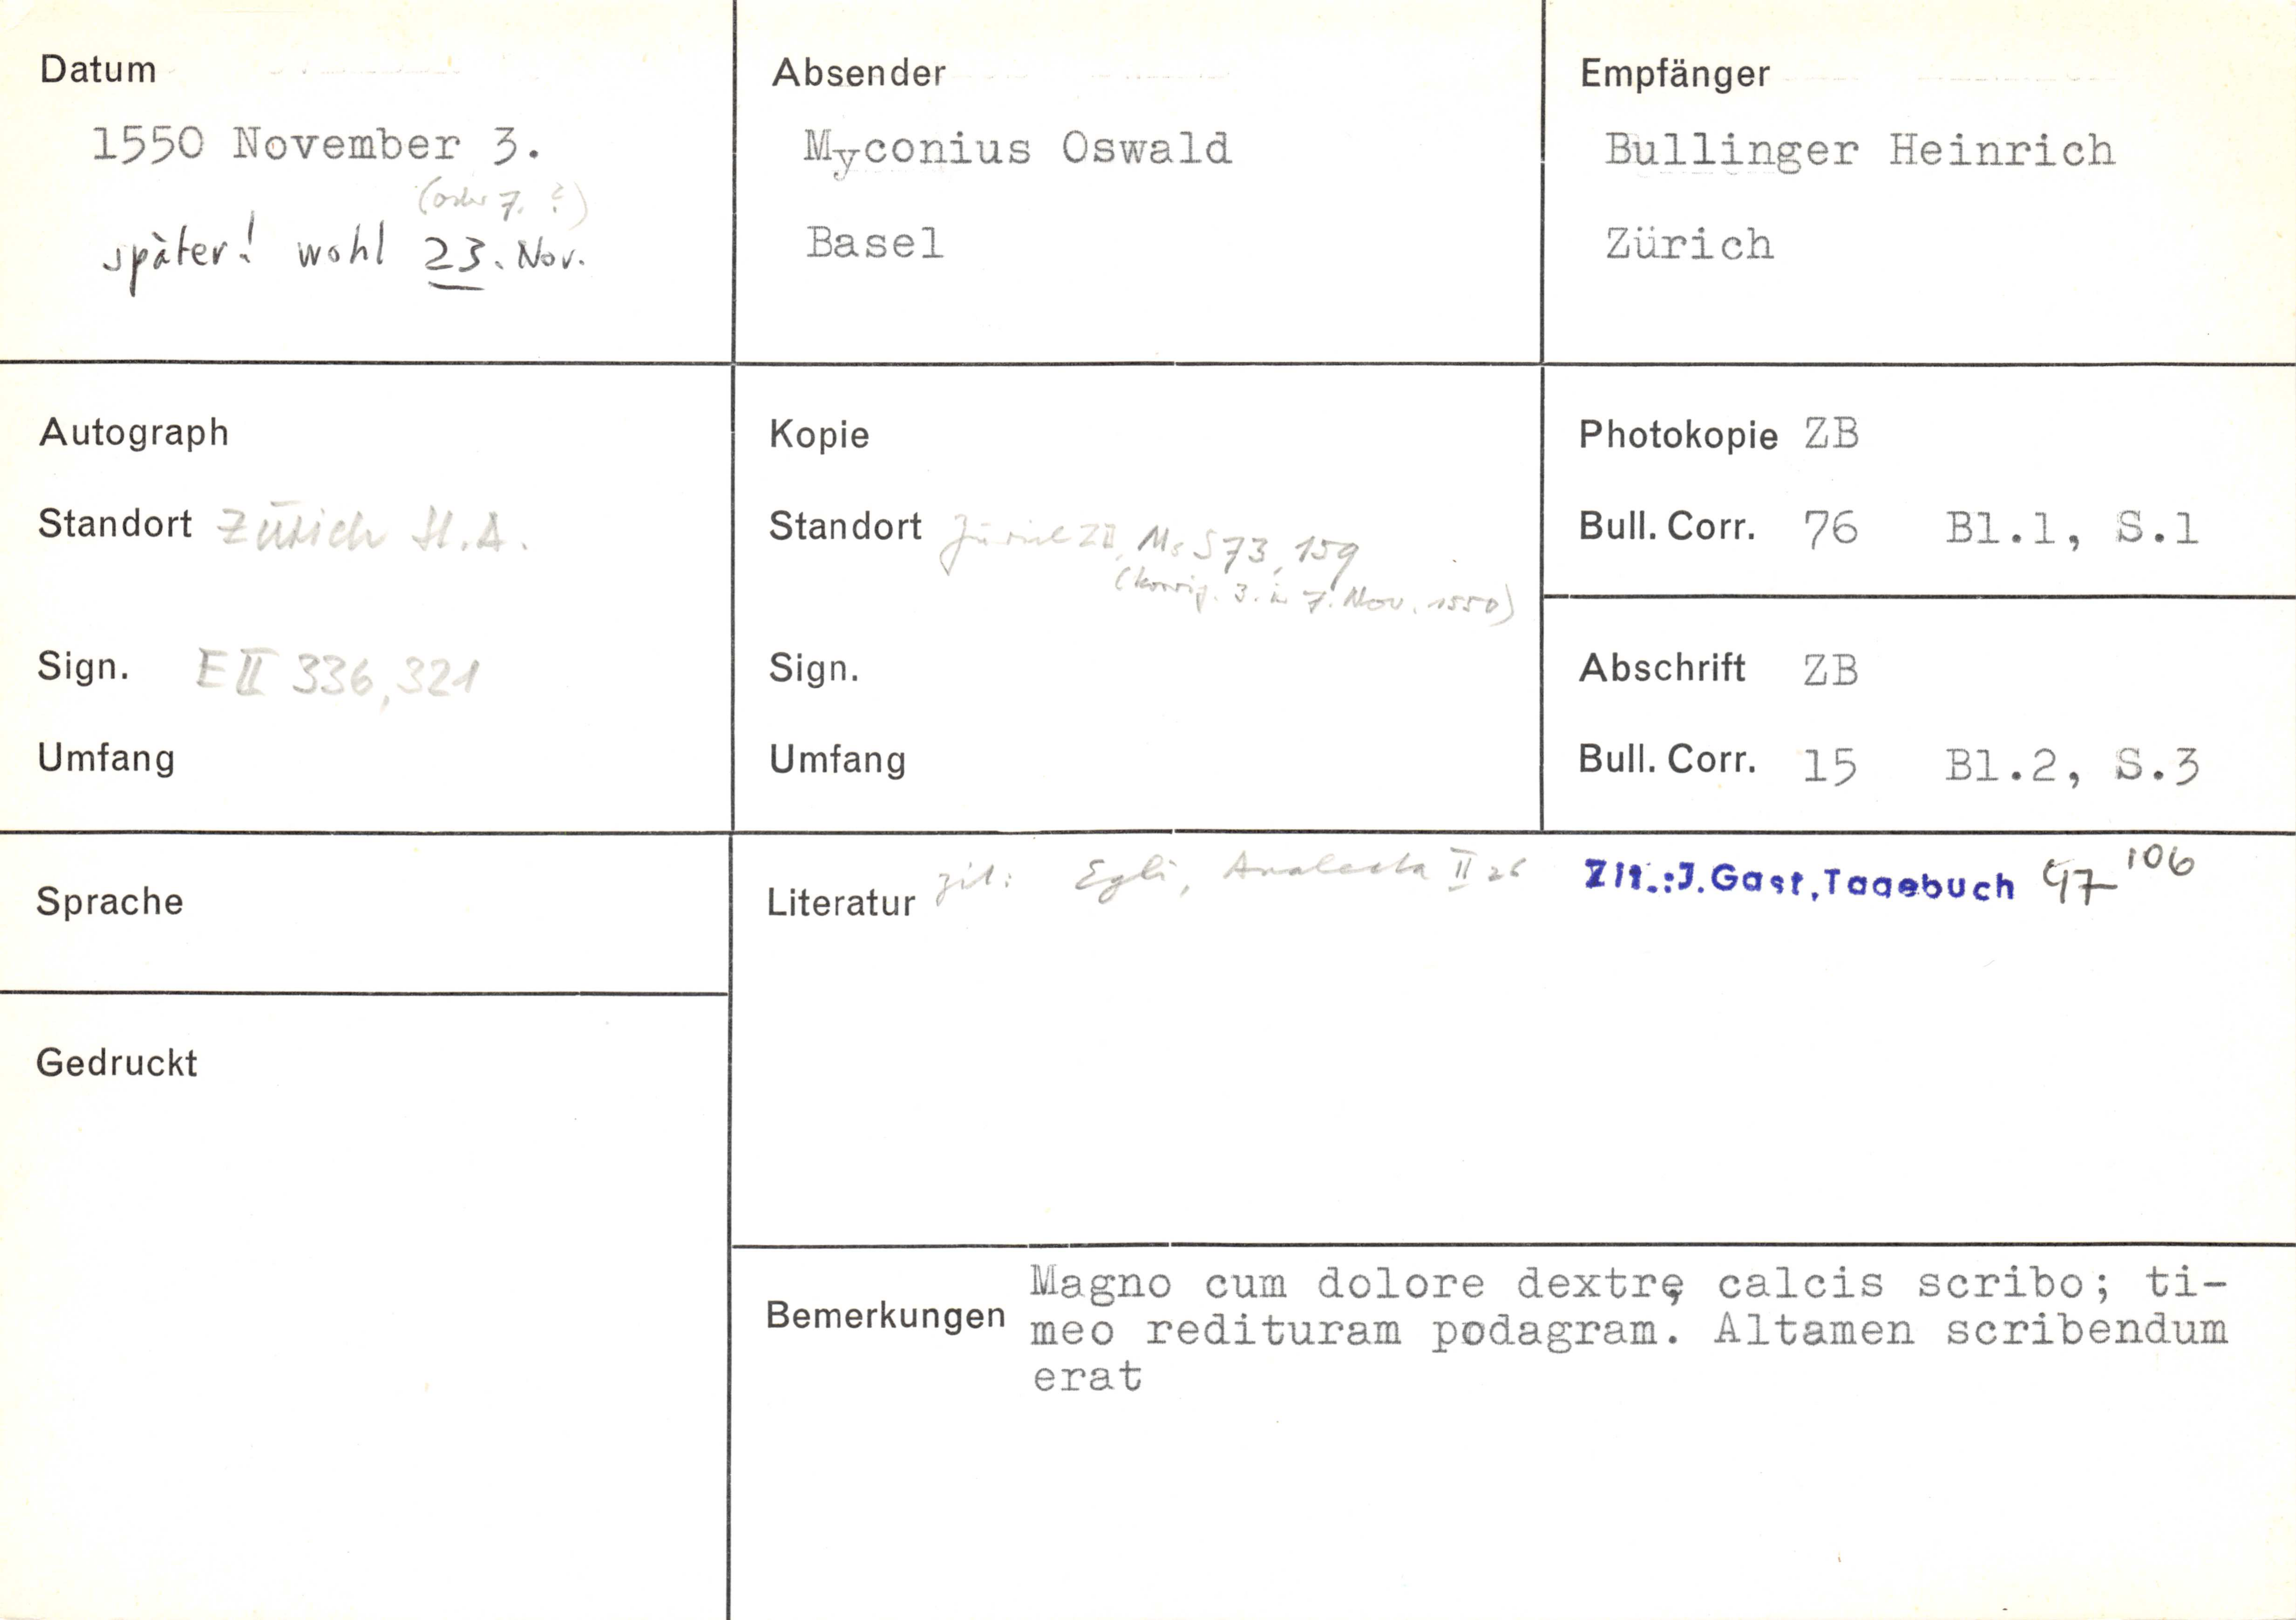 Datum
1550 November 3.
(oder 7. ?)
später! wohl 23. Nov.
Absender
Myconius Oswald
Basel
Empfänger
Bullinger Heinrich
Zürich
Autograph
Standort Zürich St.A.
Sign. E II 336, 321
Umfang
Kopie
Standort Zürich ZB, Ms S 73, 159
(korrig. 3. in 7. Nov. 1550)
Sign.
Umfang
Photokopie ZB
Bull. Corr. 76 Bl.1, S.1
Abschrift ZB
Bull. Corr. 15 Bl.2, S.3
Sprache
Gedruckt
Literatur zit: Egli, Analecta II 26 Zit.:J.Gast,Tagebuch 97 106
Bemerkungen
Magno cum dolore dextrę calcis scribo; ti-
meo redituram podagram. Altamen scribendum
erat